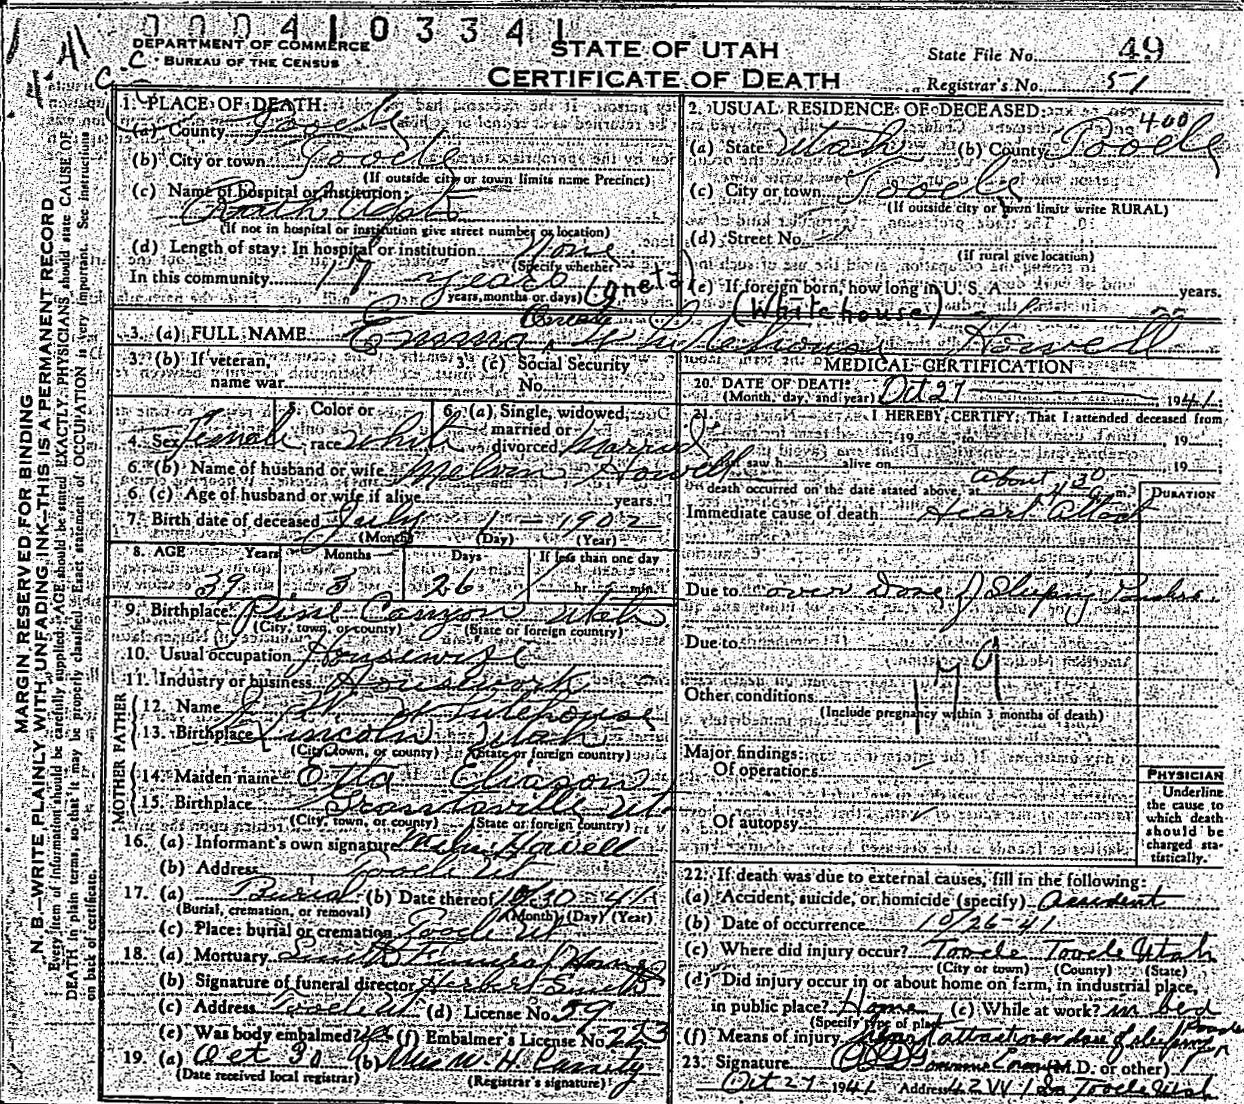 000410334
DEPARTMENT OF COMMERCE
BUREAU OF THE CENSUS
C.C.
STATE OF UTAH
CERTIFICATE OF DEATH
State File No. 49
Registrar's No. 51
1. PLACE OF DEATH:
(a) County Tooele
(b) City or town Tooele
(If outside city or town limits name Precinct)
(c) Name of hospital or institution:
(If not in hospital or institution give street number or location)
(d) Length of stay: In hospital or institution None
(Specify whether
In this community 17 years
years, months or days)
2. USUAL RESIDENCE OF DECEASED:
400
(a) State Utah (b) County Tooele
(c) City or town Tooele
(If outside city or town limits write RURAL)
(d) Street No.
(If rural give location)
(e) If foreign born, how long in U. S. A. years.
(Oneta) (Whitehouse)
3. (a) FULL NAME Emma Oneta Whitehouse Howell
3. (b) If veteran, name war
3. (c) Social Security No.
4. Sex Female 5. Color or race White 6. (a) Single, widowed, married or divorced Married
6. (b) Name of husband or wife Melvin Howell
6. (c) Age of husband or wife if alive years.
7. Birth date of deceased July 1 - 1902
(Month) (Day) (Year)
8. AGE Years Months Days If less than one day
39 3 26 hr. min.
9. Birthplace Pine Canyon Utah
(City, town, or county) (State or foreign country)
10. Usual occupation Housewife
11. Industry or business Housework
FATHER
12. Name Whitehouse
13. Birthplace Lincoln Utah
(City, town, or county) (State or foreign country)
MOTHER
14. Maiden name Etta Eliason
15. Birthplace Grantsville Ut
(City, town, or county) (State or foreign country)
16. (a) Informant's own signature Melvin Howell
(b) Address Tooele Ut
17. (a) Burial (b) Date thereof 10/30 41
(Burial, cremation, or removal) (Month) (Day) (Year)
(c) Place: burial or cremation Tooele Ut
18. (a) Mortuary Smith Funeral Home
(b) Signature of funeral director Herbert Smith
(c) Address Tooele Ut (d) License No. 59
(e) Was body embalmed? (f) Embalmer's License No. 223
19. (a) Oct 30 (b) Miss W. H. Cassity
(Date received local registrar) (Registrar's signature)
MEDICAL CERTIFICATION
20. DATE OF DEATH: Oct 27 1941
(Month, day, and year)
21. I HEREBY CERTIFY: That I attended deceased from
19 to 19
I last saw h alive on 19
death occurred on the date stated above, at About 4 30 m.
DURATION
Immediate cause of death Heart Attack
Due to over Dose of Sleeping
Due to
179
Other conditions
(Include pregnancy within 3 months of death)
Major findings:
Of operations
Of autopsy
PHYSICIAN
Underline the cause to which death should be charged statistically.
22. If death was due to external causes, fill in the following:
(a) Accident, suicide, or homicide (specify) Accident
(b) Date of occurrence 10/26-41
(c) Where did injury occur? Tooele Tooele Utah
(City or town) (County) (State)
(d) Did injury occur in or about home on farm, in industrial place, in public place? Home (e) While at work? in bed
(Specify type of place)
(f) Means of injury Heart attack over dose of sleeping
23. Signature (M.D. or other)
Oct 27 1941 Address Tooele Utah
MARGIN RESERVED FOR BINDING
N. B.—WRITE PLAINLY, WITH UNFADING INK—THIS IS A PERMANENT RECORD
Every item of information should be carefully supplied. AGE should be stated EXACTLY. PHYSICIANS should state CAUSE OF
DEATH in plain terms, so that it may be properly classified. Exact statement of OCCUPATION is very important. See instructions
on back of certificate.